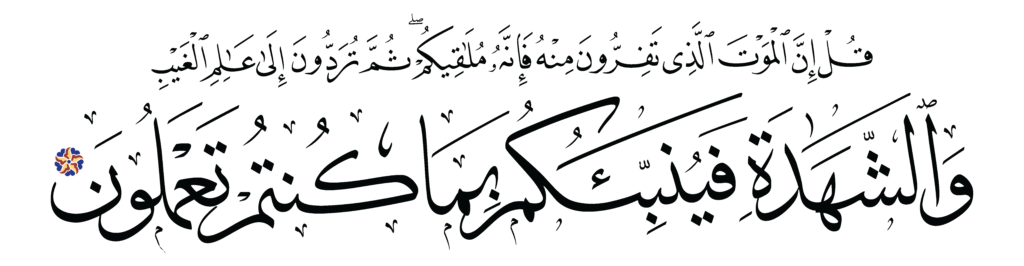 قُلْ إِنَّ ٱلْمَوْتَ ٱلَّذِى تَفِرُّونَ مِنْهُ فَإِنَّهُۥ مُلَٰقِيكُمْ ۖ ثُمَّ تُرَدُّونَ إِلَىٰ عَٰلِمِ ٱلْغَيْبِ
وَٱلشَّهَٰدَةِ فَيُنَبِّئُكُم بِمَا كُنتُمْ تَعْمَلُونَ